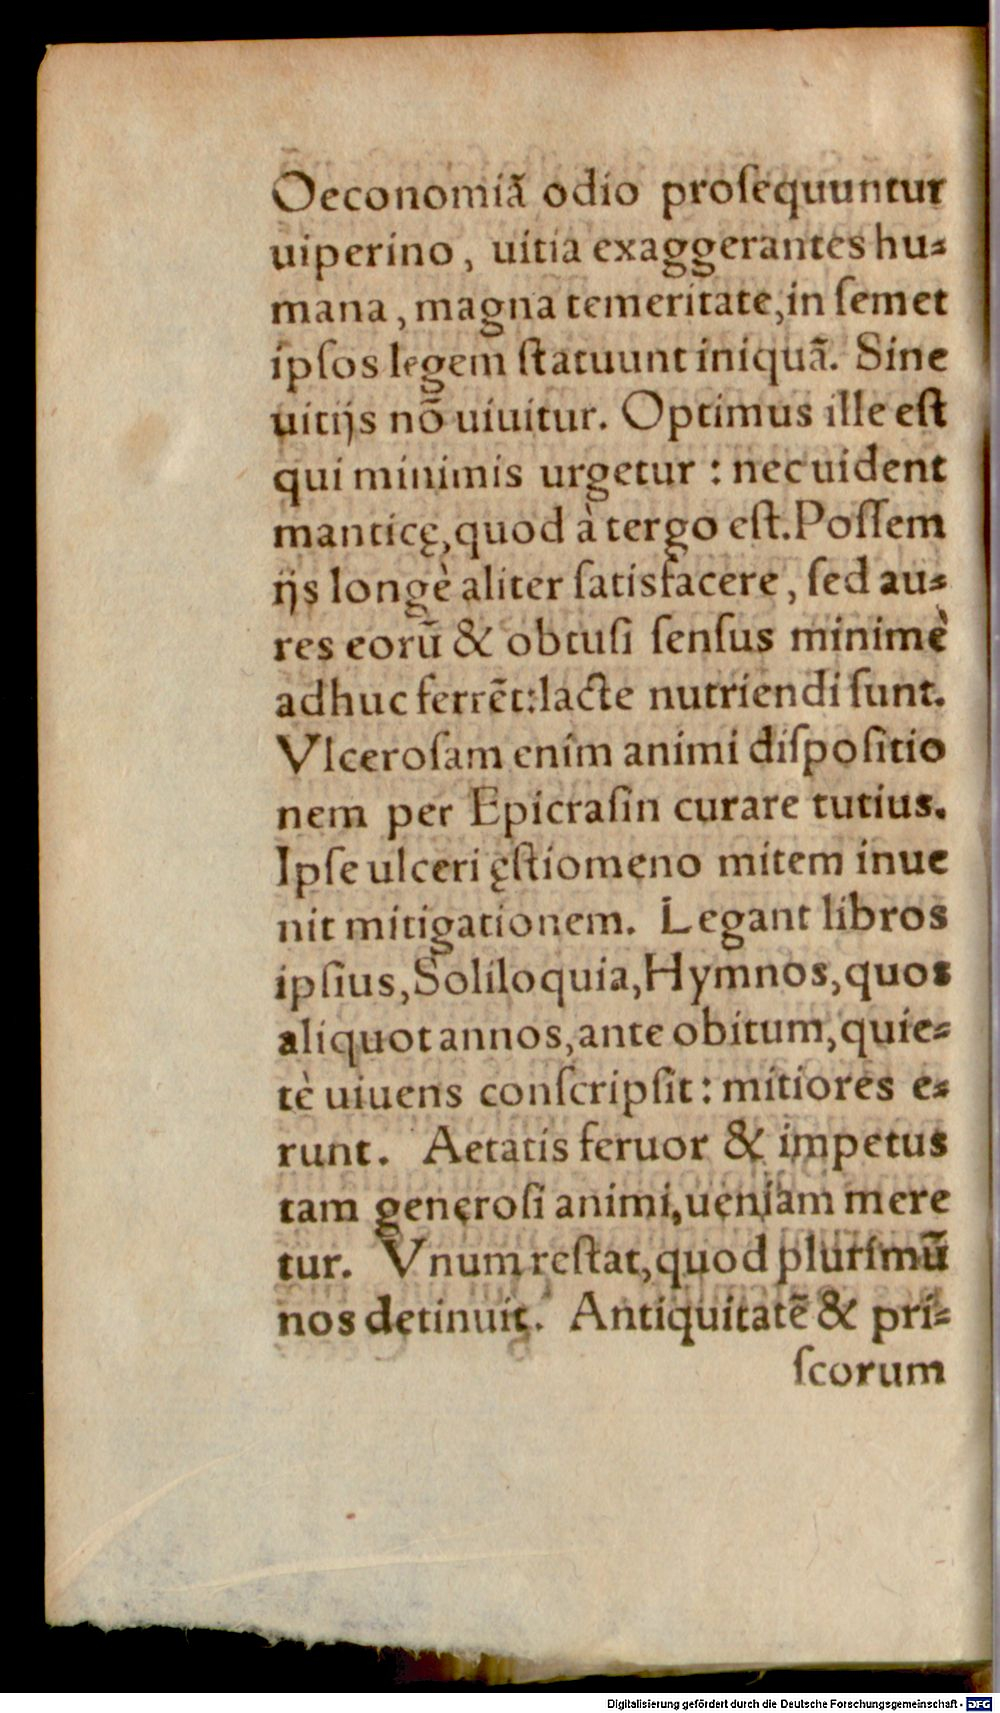 Oeconomiā odio proſequuntur
uiperino, uitia exaggerantes hu⸗
mana, magna temeritate, in ſemet
ipſos legem ſtatuunt iniquā. Sine
uitijs nō uiuitur. Optimus ille eſt
qui minimis urgetur : nec uident
manticę, quod à tergo eſt. Poſſem
ijs longè aliter ſatisfacere, ſed au⸗
res eorū & obtuſi ſenſus minimè
adhuc ferrēt: lacte nutriendi ſunt.
Vlceroſam enim animi diſpoſitio
nem per Epicraſin curare tutius.
Ipſe ulceri ęſtiomeno mitem inue
nit mitigationem. Legant libros
ipſius, Soliloquia, Hymnos, quos
aliquot annos, ante obitum, quie⸗
tè uiuens conſcripſit : mitiores e⸗
runt. Aetatis feruor & impetus
tam generoſi animi, ueniam mere
tur. Vnum reſtat, quod plurimū
nos detinuit. Antiquitatē & pri⸗
ſcorum
Digitalisierung gefördert durch die Deutsche Forschungsgemeinschaft - DFG